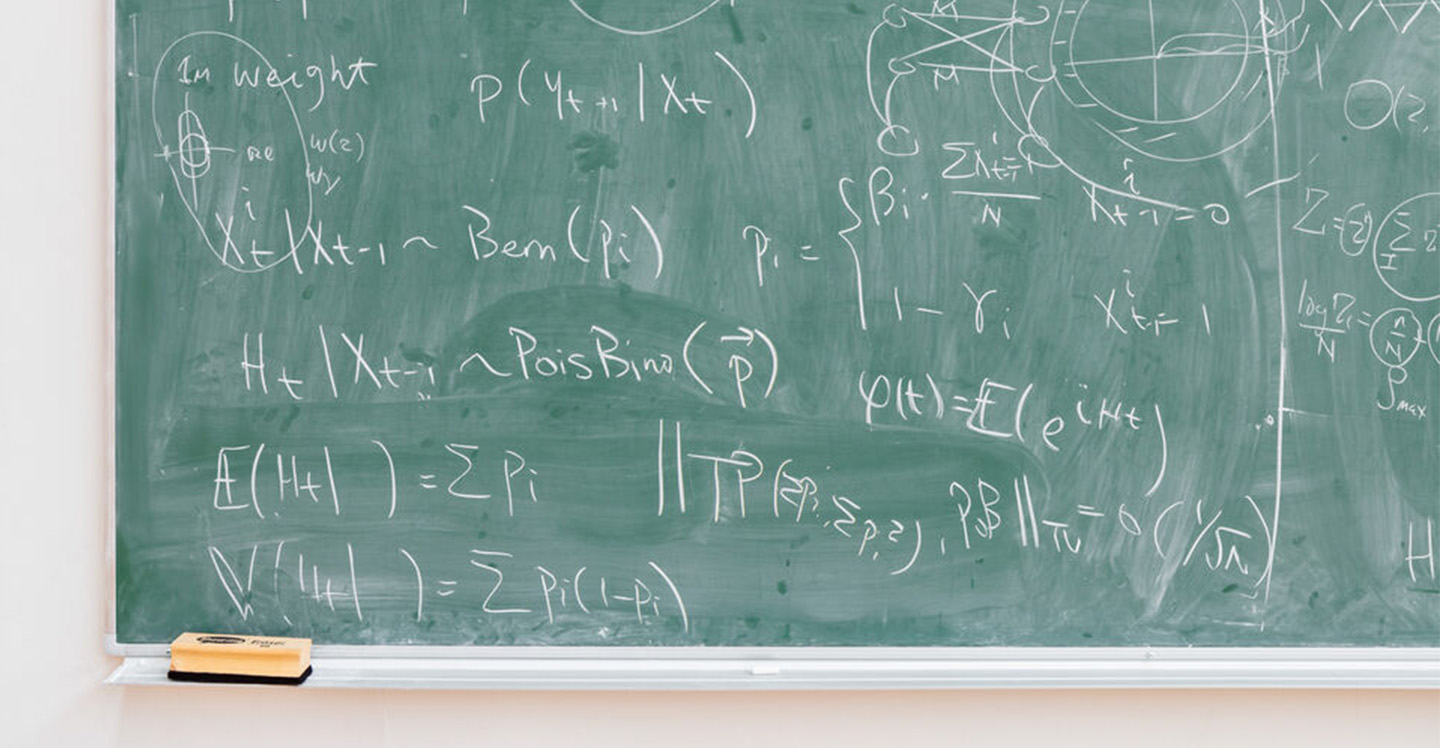 Im weight
Re
w(z)
wy
P(Y_{t+1} | X_t)
X_t^i | X_{t-1} ~ Bern(p_i)
p_i = { β_i · ΣX_{t-1}^i / N   X_{t-1}^i = 0
1 - γ_i   X_{t-1}^i = 1
H_t | X_{t-1} ~ PoisBino(p⃗)
φ(t) = E(e^{iHt})
E(H_t | ) = Σ p_i
|| TP(Σp_i, Σp_i^2), PB ||_{TV} = o(1/√n)
V(H_t | ) = Σ p_i(1-p_i)
O(2,
Z =
log Z =
N
ρ_max
H